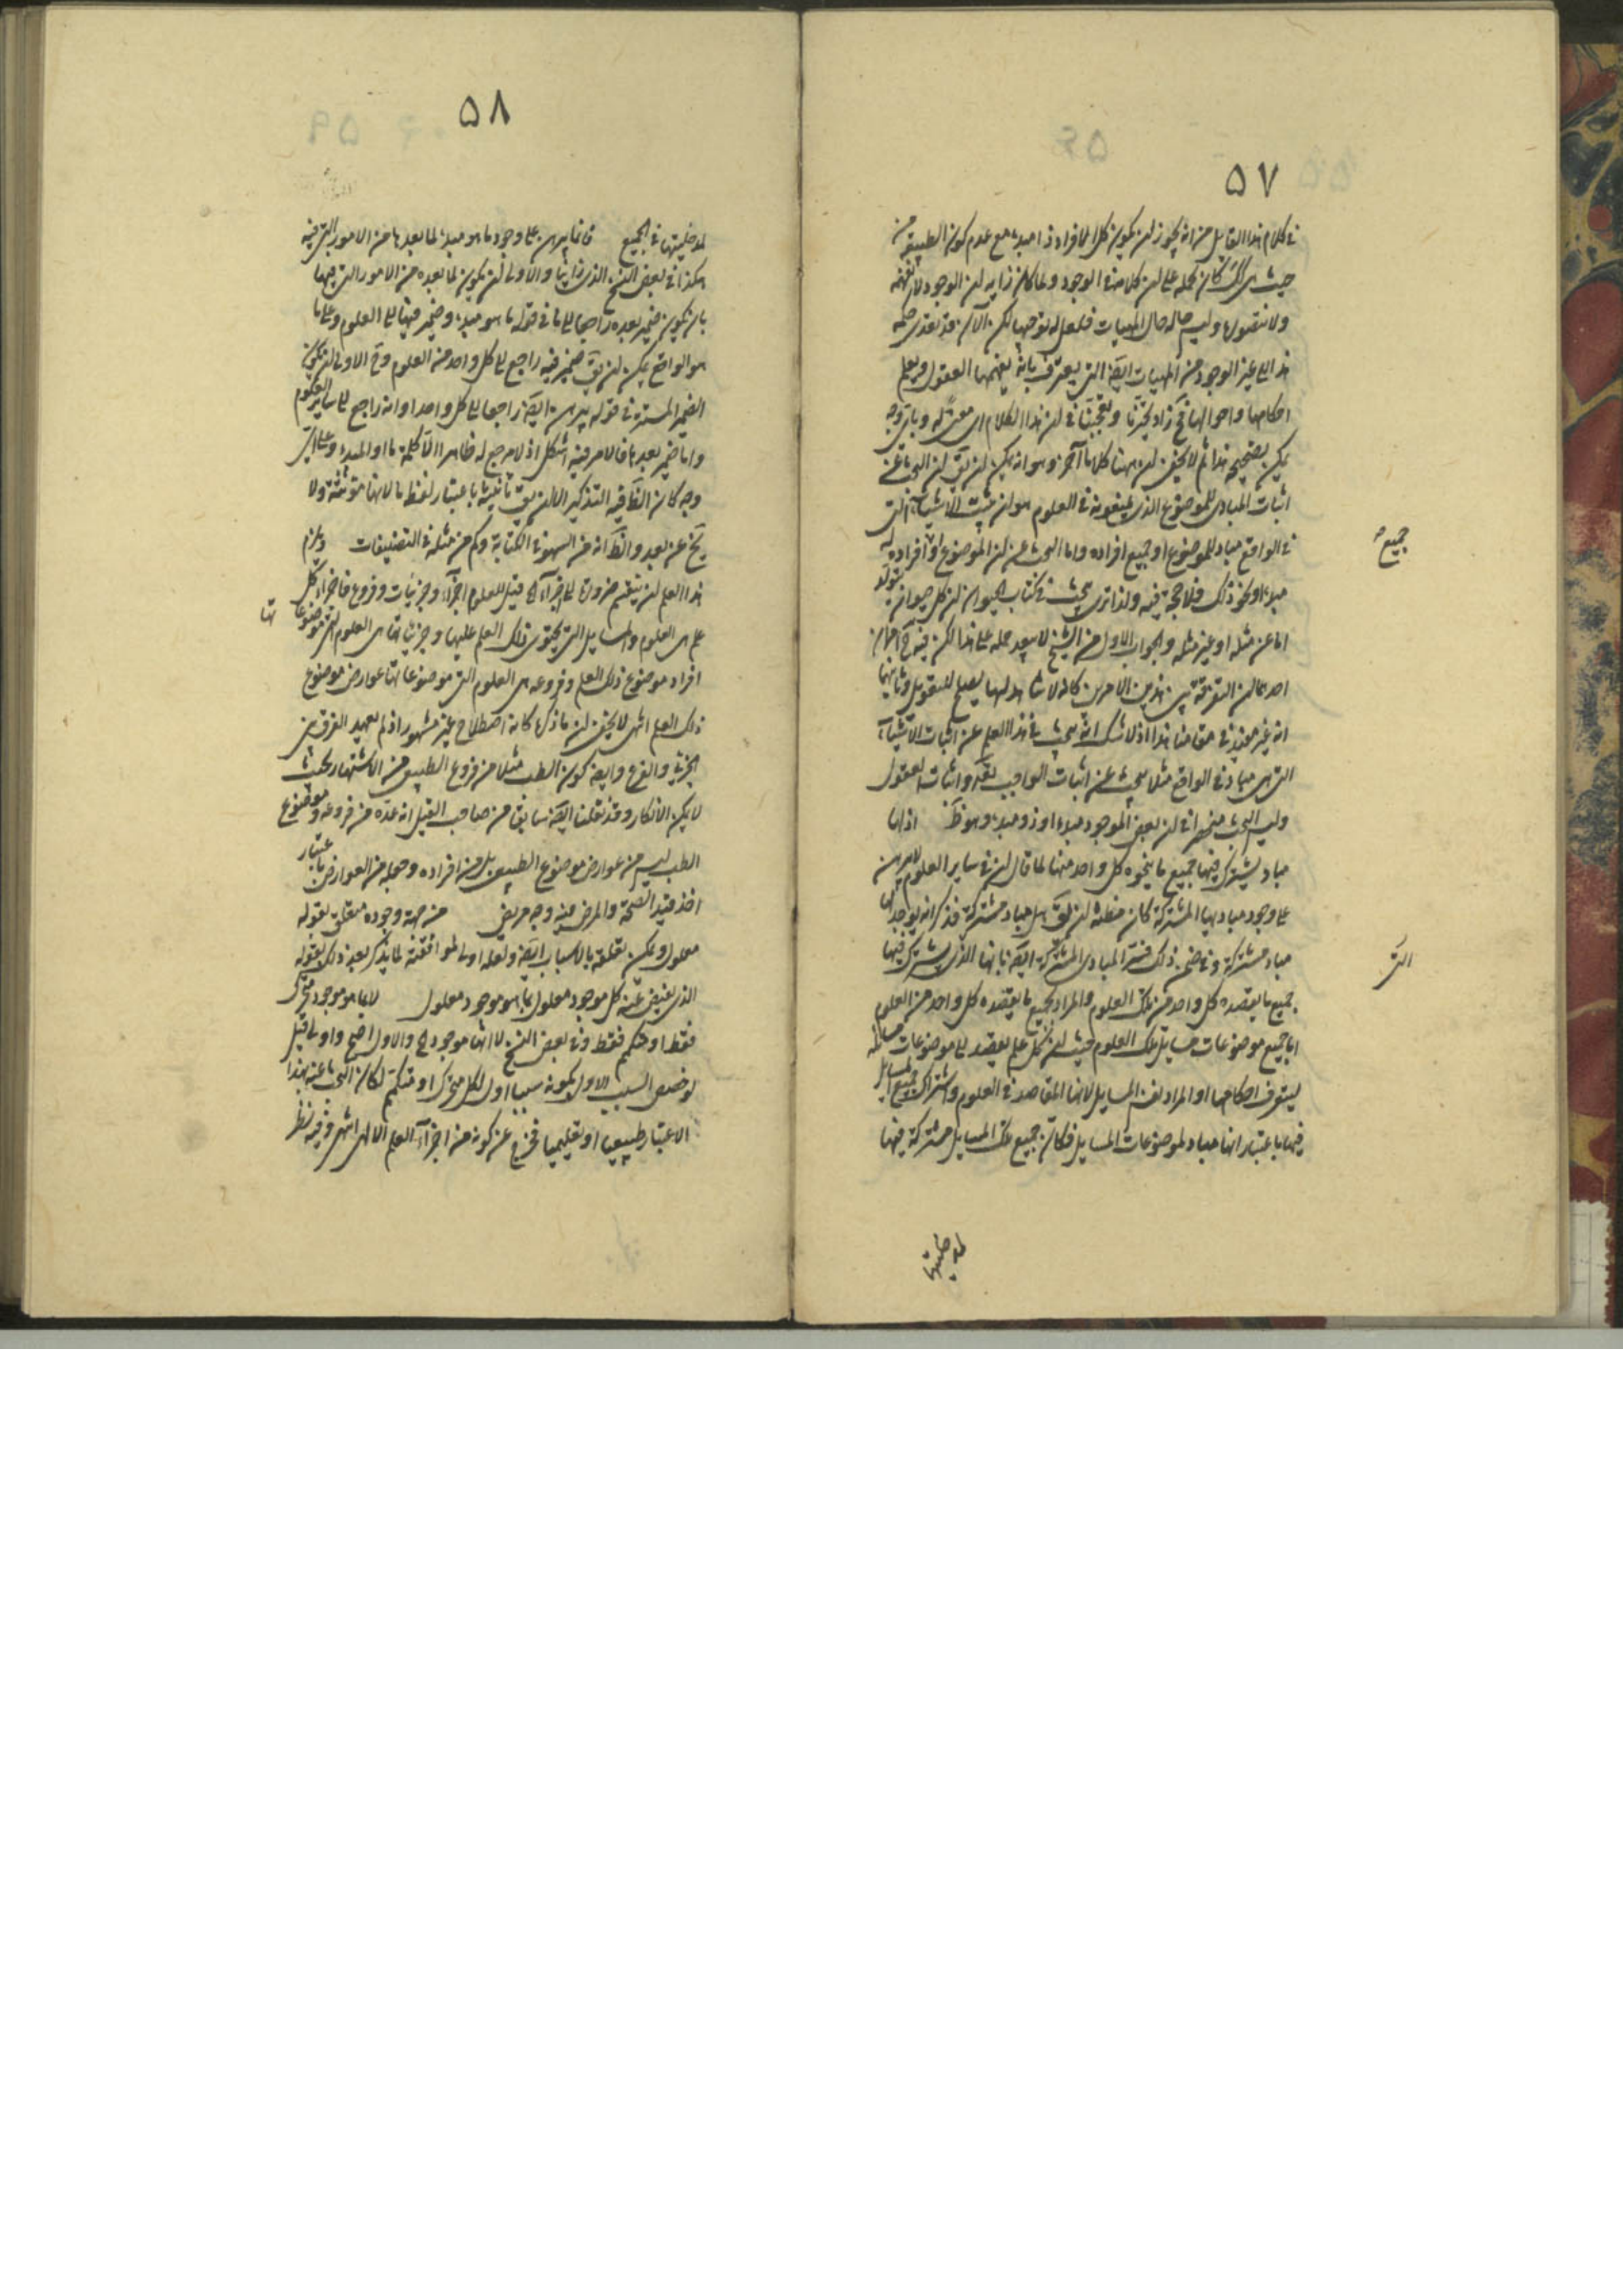 ٥٧
في كلام هذا القايل من انه يجوز ان يكون كل الافراد ذا مبدء مع عدم كون الطبيعة من
حيث هي كان حمله على ان كلامنا في الوجود ولما كان زايه ان الوجود لا
ولا متصول وليس حاله حال المهيات فلعل له توجها لكن الآن قد تعدى حكمه
هذا الى غير الوجود من المهيات ايضا التي يعترف بانه يفهمها العقول ويعلم
احكامها واحوالها فح زاد تحيرنا وتعجبنا في ان هذا الكلام اي معنى له وباي وجه
يمكن تصحيحه هذا ثم لا يخفى ان ههنا كلاما آخر وهو انه يمكن ان يق ان البحث عن
اثبات المبادي للموضوع الذي يمنعونه في العلوم هو ان يثبت الاشياء التي
في الواقع مباد للموضوع او جميع افراده واما البحث عن ان الموضوع او افراده له
جميع
مبدء او نحو ذلك فلا حجر فيه ولذا ترى يبحث في كتاب الحيوان ان كل حيوان يتولد
اما عن مثله او غير مثله والجواب الاول من الشيخ لا يبعد حمله على هذا لكن فيه
احدهما ان التفرقة بين هذين الامرين كانه لا يصلح للتعويل وثانيهما
انه غير مفيد في حق هذا اذ لا شك انه يبحث في هذا العلم عن اثبات الاشياء
التي هي مباد في الواقع مثلا يبحث عن اثبات الواجب تعالى واثبات العقول
وليس البحث منحصرا في ان بعض الموجود مبدء او ذو مبدء وهو ظ اذ لها
مباد يشترك فيها جميع ما ينحوه كل واحد منها لما قال ان في ساير العلوم لا يبرهن
على وجود مباديها المشتركة كان مظنة ان يق هل مباد مشتركة فذكر انه يوجد لها
مباد مشتركة وفي ضمن ذلك فسر المبادي المشتركة ايضا بانها الذي يشترك فيها
التى
جميع ما يقصده كل واحد من تلك العلوم والمراد بجميع ما يقصده كل واحد من العلوم
اما جميع موضوعات مسايل تلك العلوم حيث ان كل علم يقصد الى موضوعات مسائله
ليتعرف احكامها او المراد نفس المسايل لانها المقاصد في العلوم واشتراك جميع المسايل
فيها باعتبار انها مباد لموضوعات المسايل فكان جميع تلك المسايل مشتركة فيها
لمدخليتها
٥٨
لمدخليتها في الجميع فانما يبرهن على وجود ما هو مبدء لما بعدها من الامور التي فيه
هكذا في بعض النسخ الذي رايناه والاولى ان يكون لما بعده من الامور التي فيها
بان يكون ضمير بعده راجعا الى ما في قوله ما هو مبدء وضمير فيها الى العلوم وعلى ما
هو الواقع يمكن ان يق ضمير فيه راجع الى كل واحد من العلوم وح الاولى ان يكون
الضمير المستتر في قوله يبرهن ايضا راجعا الى كل واحد او انه راجع الى ساير العلوم
واما ضمير بعدها فالامر فيه اشكل اذ لا مرجع له ظاهرا الا كلمة ما او المبدء وعلى اي
وجه كان الظ فيه التذكير الا ان يق تانيثه باعتبار لفظ ما لانها مؤنثة ولا
يخ عن بعد والظ انه من السهو في الكتابة وكم من مثله في التصنيفات ويلزم
هذا العلم ان ينقسم ضرورة الى اجزاء قيل للعلوم اجزاء وجزئيات وفروع فاجزاء كل
علم هي العلوم والمسايل التي يحتوي ذلك العلم عليها وجزئياتها هي العلوم التي موضوعا
تها
افراد موضوع ذلك العلم وفروعه هي العلوم التي موضوعاتها عوارض موضوع
ذلك العلم انتهى لا يخفى ان ما ذكره كانه اصطلاح غير مشهور اذ لم يعهد الفرق بين
الجزئي والفرع وايضا كون الطب مثلا من فروع الطبيعي من الاشتهار بحيث
لا يمكن الانكار وقد نقلنا ايضا سابقا من صاحب القيل انه عده من فروعه وموضوع
الطب ليس من عوارض موضوع الطبيعي بل من افراده وجعله من العوارض باعتبار
اخذ قيد الصحة والمرض فيه وجه مريض من جهة وجوده متعلق بقوله
معلول ويمكن تعلقه بالاسباب ايضا ولعله اولى لموافقته لما يذكر بعد ذلك بقوله
الذي يفيض عنه كل موجود معلول بما هو موجود معلول لا بما هو موجود متحرك
فقط او متكمم فقط وفي بعض النسخ لا انها موجود والاول اصح واولى قيل
لو خص السبب الاول بكونه سببا اول لكل متحرك او متكمم لكان البحث عنه بهذا
الاعتبار طبيعيا او تعليميا فخرج عن كونه من اجزاء العلم الالهي انتهى وفيه نظر